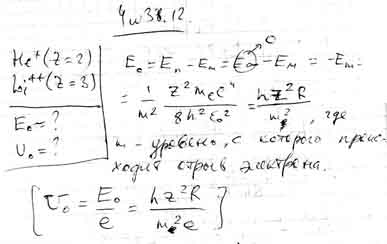 Чиж 38.12.
He⁺ (Z=2)
Li⁺⁺ (Z=3)
E₀ = ?
U₀ = ?
E₀ = Eₙ - Eₘ = E∞ - Eₘ = -Eₘ =
0
= 1/m² · Z² mₑ e⁴ / 8 h² ε₀² = h Z² R / m², где
m - уровень, с которого проис-
ходит отрыв электрона.
[ U₀ = E₀/e = h Z² R / m² e ]